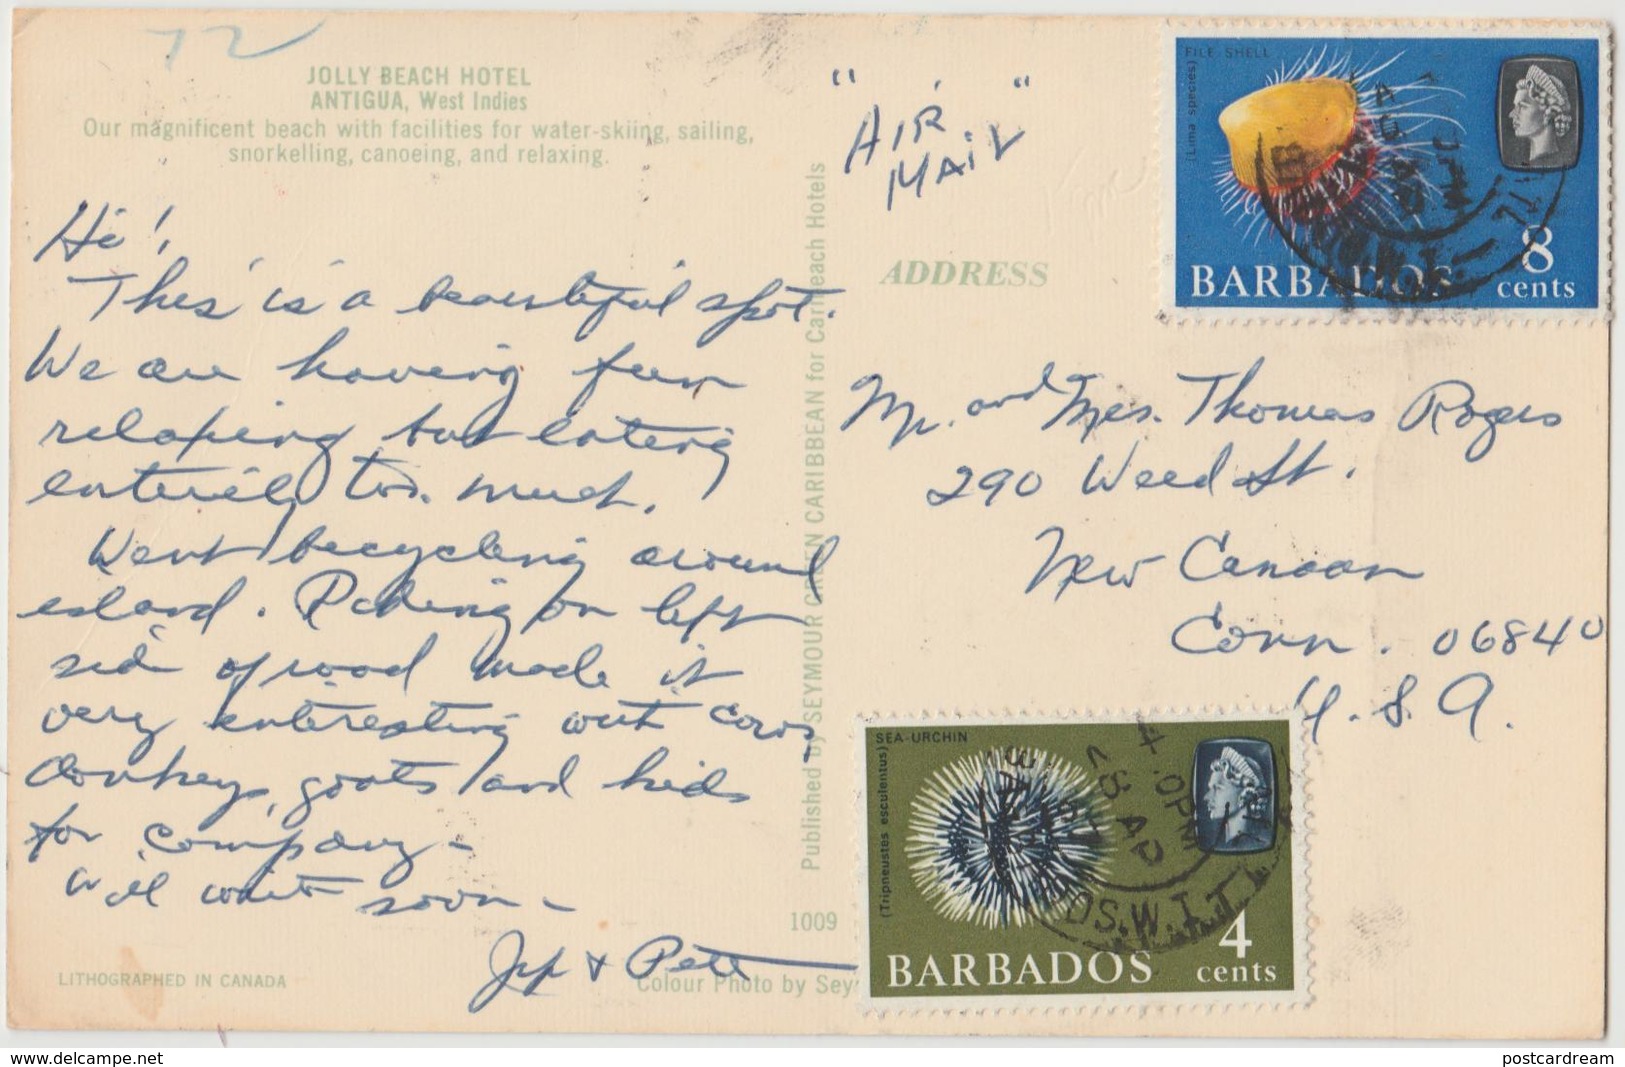 72
JOLLY BEACH HOTEL
ANTIGUA, West Indies
Our magnificent beach with facilities for water-skiing, sailing,
snorkelling, canoeing, and relaxing.
Hi!
This is a beautiful spot.
We are having fun
relaxing but eating
entirely too much.
Went bicycling around
island. Riding on left
side of road made it
very interesting with cows,
donkeys, goats and kids
for company -
Will write soon -
& Pete
LITHOGRAPHED IN CANADA
Colour Photo by Sey
1009
Published by SEYMOUR GREEN CARIBBEAN for Caribbeach Hotels
"AIR
MAIL"
ADDRESS
Mr. and Mrs. Thomas Rogers
290 Weed St.
New Canaan
Conn. 06840
U.S.A.
FILE SHELL
(Lima species)
BARBADOS
8
cents
SEA-URCHIN
(Tripneustes esculentus)
BARBADOS
4
cents
4.0PM
AP
BA DS.W.I.
www.delcampe.net
postcardream